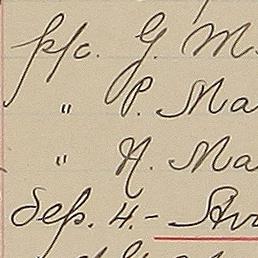 p/c. G. M
" P. Ma
" N. Ma
Sep. 4.-